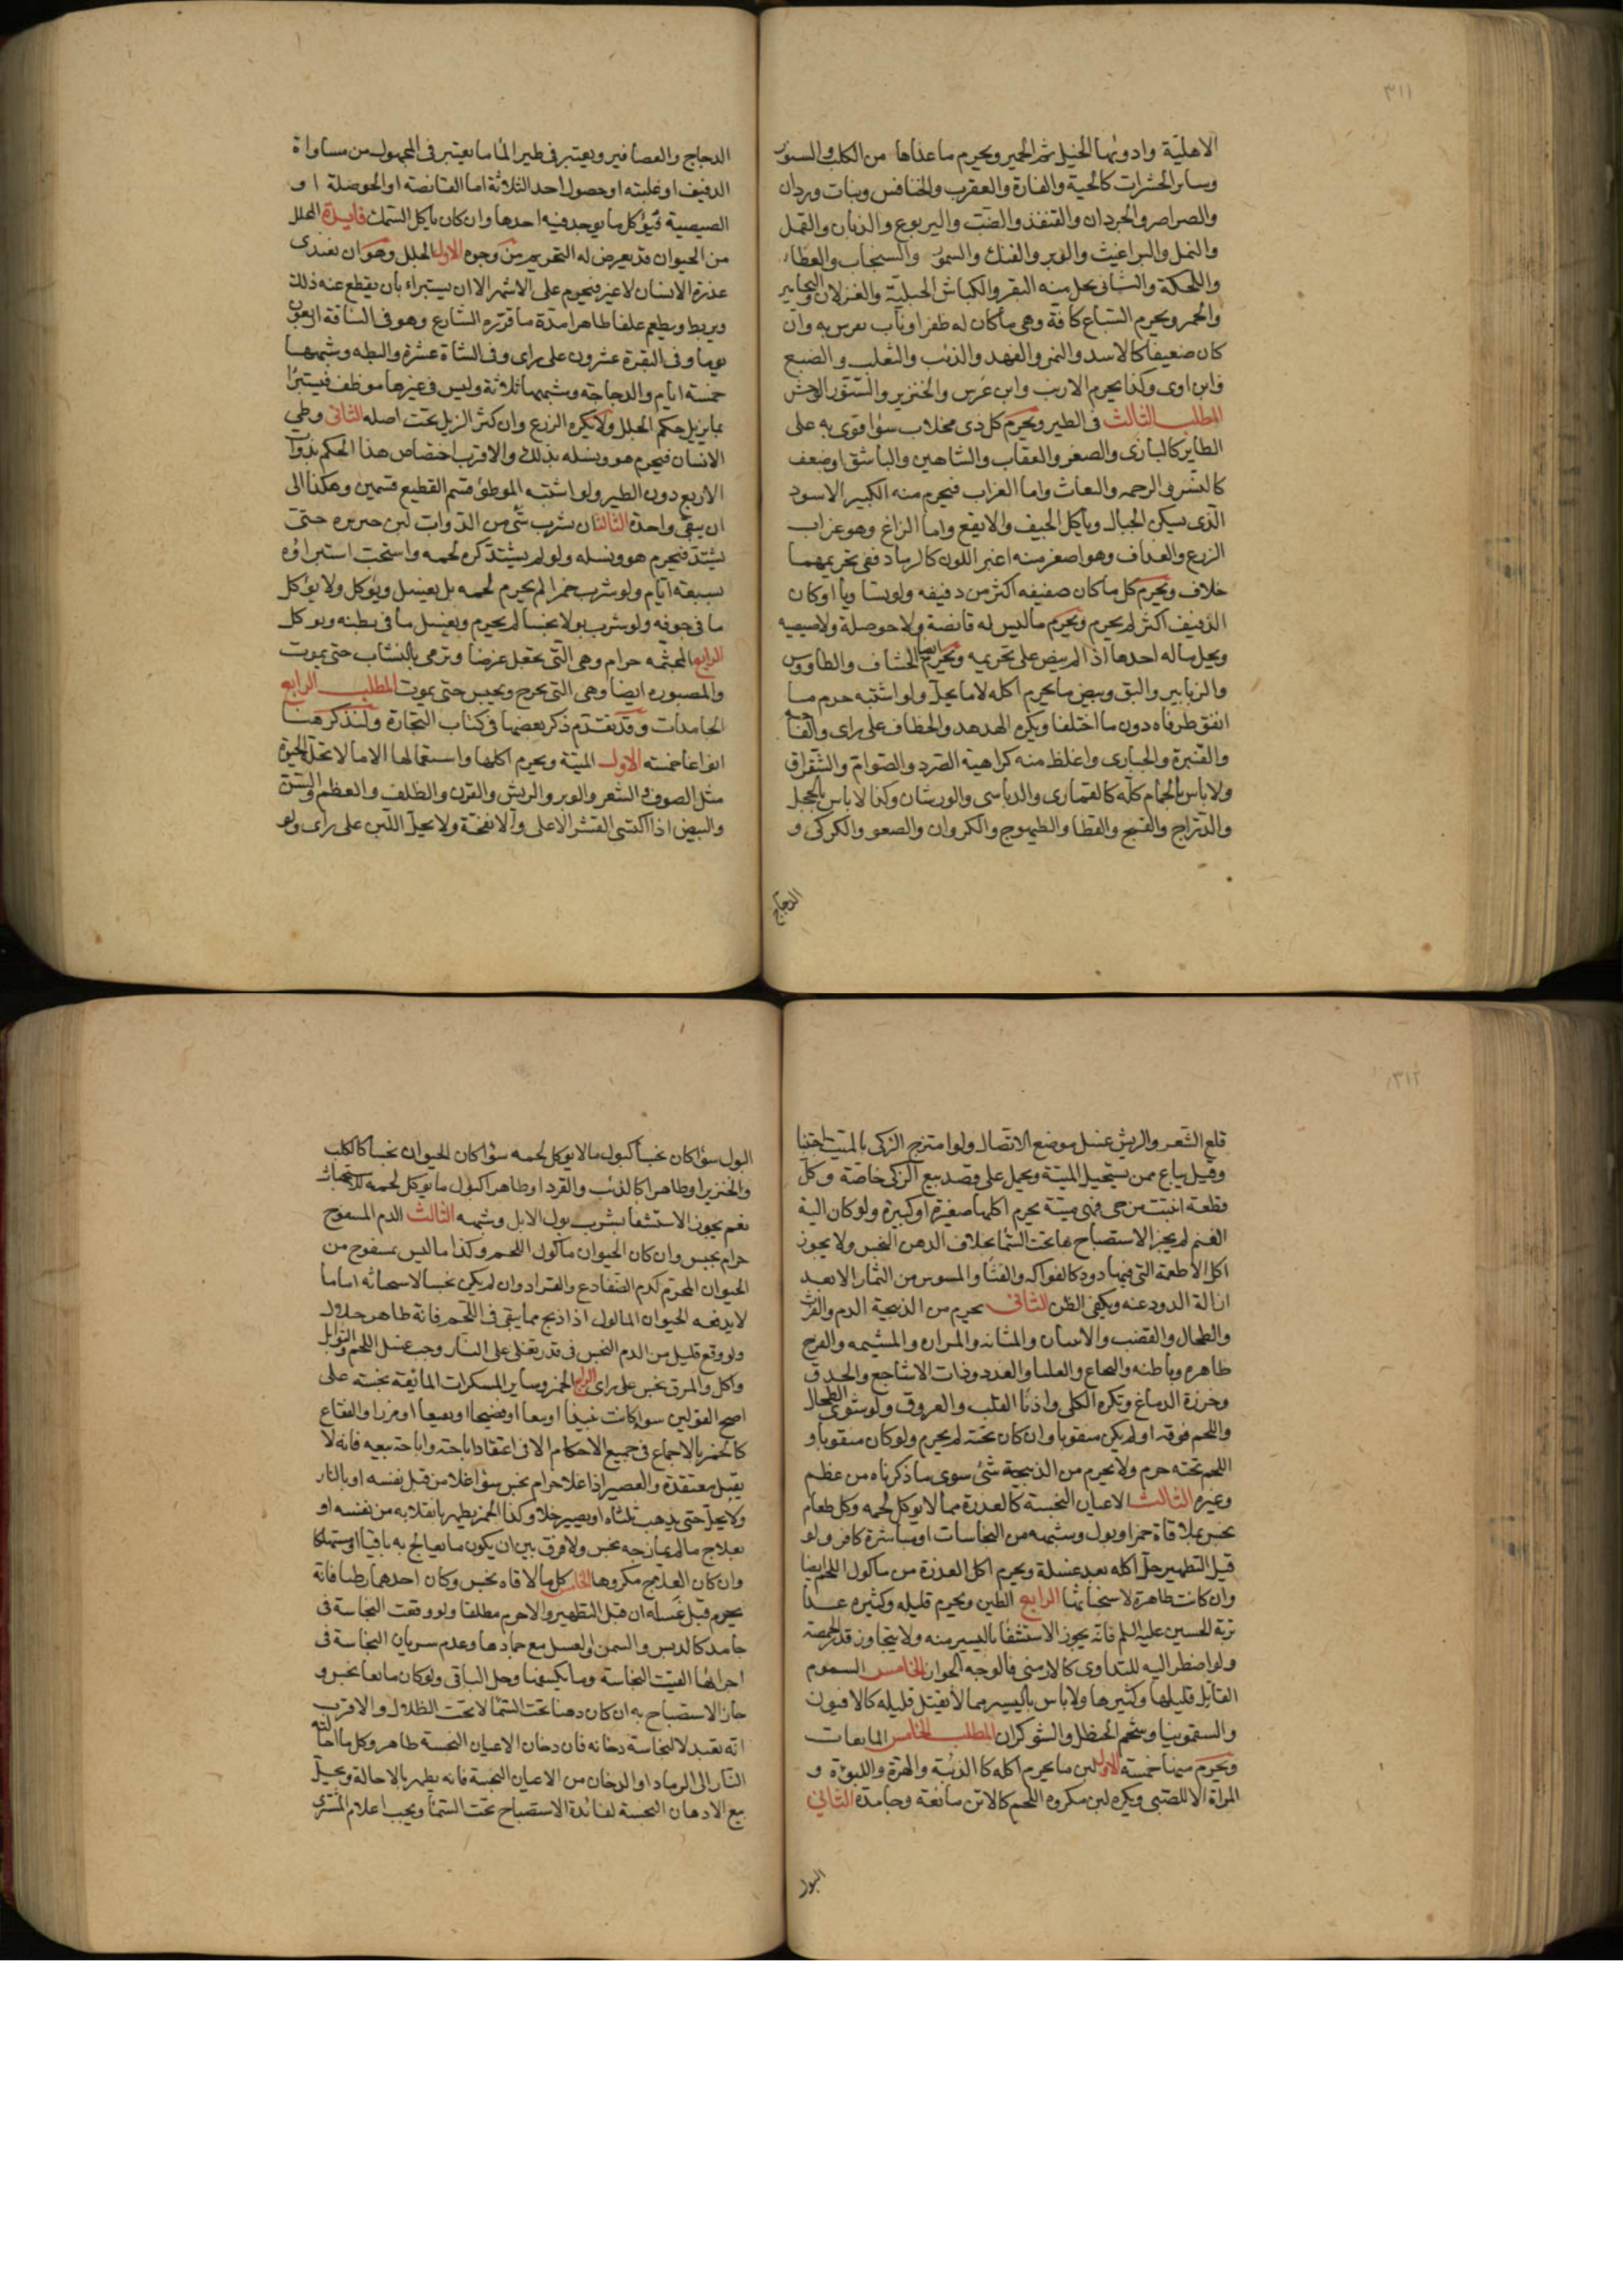 ٣١١
الاهلية وادونها الخيل ثم الحمير ويحرم ما عداها من الكلب والسنور
وساير الحشرات كالحية والفارة والعقرب والخنافس وبنات وردان
والصراصر والجردان والقنفذ والضب واليربوع والذباب والقمل
والنمل والبراغيث والوبر والفنك والسمور والسنجاب والعظاء
واللحكة والثانى يحل منه البقر والكباش الجبلية والغزلان واليحامير
والحمر ويحرم السباع كافة وهى ما كان له ظفر او ناب يفرس به وان
كان ضعيفا كالاسد والنمر والفهد والذئب والثعلب والضبع
وابن اوى وكذا يحرم الارنب وابن عرس والخنزير والسنور الوحش
المطلب الثالث فى الطير ويحرم كل ذى مخلاب سوا قوى به على
الطاير كالبازى والصقر والعقاب والشاهين والباشق او ضعف
كالنسر والرحمه والبغاث واما الغراب فيحرم منه الكبير الاسود
الذى يسكن الجبال وياكل الجيف والابقع واما الزاغ وهو غراب
الزرع والغداف وهو اصغر منه اغبر اللون كالرماد ففى تحريمهما
خلاف ويحرم كل ما كان صفيفه اكثر من دفيفه ولو تساويا او كان
الدفيف اكثر لم يحرم ويحرم ما ليس له قانصة ولا حوصلة ولا صيصيه
ويحل ما له احدها اذا لم ينص على تحريمه ويحرم ايضا الخشاف والطاووس
والزنابير والبق وبيض ما يحرم اكله لا ما يحل ولو اشتبه حرم ما
اتفق طرفاه دون ما اختلفا ويكره الهدهد والخطاف على راى والفاخته
والقنبرة والحبارى واغلظ منه كراهية الصرد والصوام والشقراق
ولا باس بالحمام كله كالقمارى والدباسى والورشان وكذا لا باس بالحجل
والدراج والقبج والقطا والطيهوج والكروان والصعو والكركى و
الدجاج
الدجاج والعصافير ويعتبر فى طير الما ما يعتبر فى المجهول من مساواة
الدفيف او غلبته او حصول احد الثلاثة اما القانصة او الحوصلة او
الصيصية فيؤكل ما يوجد فيه احدها وان كان ياكل السمك فايدة المحلل
من الحيوان قد يعرض له التحريم من وجوه الاول الجلل وهو ان يغتذى
عذرة الانسان لا غير فيحرم على الاشهر الا ان يستبراء بان يقطع عنه ذلك
ويربط ويطعم علفا طاهرا مدة ما قرره الشارع وهو فى الناقة اربعون
يوما وفى البقرة عشرون على راى وفى الشاة عشرة والبطه وشبهها
خمسة ايام والدجاجة وشبهها ثلاثة وليس فى غيرها موظف فيستبرا
بما يزيل حكم الجلل ولا يكره الزرع وان كثر الزبل تحت اصله الثانى وطى
الانسان فيحرم هو ونسله بذلك والاقرب اختصاص هذا الحكم بذوات
الاربع دون الطير ولو اشتبه الموطوء قسم القطيع قسمين وهكذا الى
ان يبقى واحدة الثالث ان يشرب شى من الدواب لبن خنزيره حتى
يشتد فيحرم هو ونسله ولو لم يشتد كره لحمه واستحب استبراؤه
بسبعة ايام ولو شرب خمرا لم يحرم لحمه بل يغسل ويؤكل ولا يؤكل
ما فى جوفه ولو شرب بولا نجسا لم يحرم ويغسل ما فى بطنه ويوكل
الرابع المجثمه حرام وهى التى تجعل غرضا وترمى بالنشاب حتى يموت
والمصبوره ايضا وهى التى تجرح وتحبس حتى يموت المطلب الرابع
الجامدات وقد تقدم ذكر بعضها فى كتاب التجارة ولنذكر هنا
انواعا خمسه الاول الميتة ويحرم اكلها واستعمالها الا ما لا تحله الحيوة
مثل الصوف والشعر والوبر والريش والقرن والظلف والعظم والسن
والبيض اذا اكتسى القشر الاعلى والانفحة ولا يحل اللبن على راى ولو
٣١٢
قلع الشعر والريش غسل موضع الاتصال ولو امتزج الزكى بالميت اجتنبا
وقيل يباع ممن يستحيل الميتة ويحمل على قصد بيع الزكى خاصة وكل
قطعة ابينت من حى فهى ميتة يحرم اكلها صغيرة او كبيرة ولو كان الية
الغنم لم يجز الاستصباح بها تحت السما بخلاف الدهن النجس ولا يجوز
اكل الاطعمة التى فيها دود كالفواكه والقثا والمسوس من الثمار الا بعد
ازالة الدود عنه ويكفى الظن الثانى يحرم من الذبيحة الدم والفرث
والطحال والقضيب والانثيان والمثانه والمراره والمشيمه والفرج
ظاهره وباطنه والنخاع والعلبا والغدد وذات الاشاجع والحدق
وخرزة الدماغ ويكره الكلى واذنا القلب والعروق ولو شوى الطحال
واللحم فوقه او لم يكن مثقوبا وان كان تحته لم يحرم ولو كان مثقوبا و
اللحم تحته حرم ولا يحرم من الذبيحة شئ سوى ما ذكرناه من عظم
وغيره الثالث الاعيان النجسة كالعذرة مما لا يوكل لحمه وكل طعام
نجس بملاقاة خمر او بول وشبهه من النجاسات او مباشرة كافر ولو
قبل التطهير حل اكله بعد غسله ويحرم اكل العذرة من ماكول اللحم ايضا
وان كانت طاهرة لاستخباثها الرابع الطين ويحرم قليله وكثيره عدا
تربة الحسين عليه السلم فانه يجوز الاستشفا باليسير منه ولا يتجاوز قدر الحمصة
ولو اضطر اليه للتداوى كالارمنى فالوجه الجواز الخامس السموم
القاتل قليلها وكثيرها ولا باس باليسير مما لا يقتل قليله كالافيون
والسقمونيا وشحم الحنظل والشوكران المطلب الخامس المايعات
ويحرم منها خمسة الاول لبن ما يحرم اكله كالذئبة والهرة واللبوة و
المراة الا للصبى ويكره لبن مكروه اللحم كالاتن مائعة وجامده الثانى
البول
البول سوا كان نجسا كبول ما لا يوكل لحمه سوا كان الحيوان نجسا كالكلب
والخنزير او طاهرا كالذئب والقرد او طاهرا كبول ما يوكل لحمه للاستخباث
نعم يجوز الاستشفا بشرب بول الابل وشبهه الثالث الدم المسفوح
حرام نجس وان كان الحيوان ماكول اللحم وكذا ما ليس بمسفوح من
الحيوان المحرم كدم الضفادع والقراد وان لم يكن نجسا لاستخباثه اما ما
لا يدفعه الحيوان الماكول اذا ذبح مما يبقى فى اللحم فانه طاهر حلال
ولو وقع قليل من الدم النجس فى قدر يغلى على النار وجب غسل اللحم والتوابل
واكل والمرق نجس على راى الرابع الخمر وساير المسكرات المائعة نجسه على
اصح القولين سوا كانت نبيذا او بتعا او فضيخا او نقيعا او مزرا والفقاع
كالخمر بالاجماع فى جميع الاحكام الا فى اعتقاد اباحته واباحة بيعه فانه لا
يقتل معتقده والعصير اذا غلا حرام نجس سوا غلا من قبل نفسه او بالنار
ولا يحل حتى يذهب ثلثاه او يصير خلا وكذا الخمر يطهر بانقلابه من نفسه او
بعلاج ما لم يمازجه نجس ولا فرق بين ان يكون ما يعالج به باقيا او مستهلكا
وان كان العلاج مكروها الخامس كل ما لاقاه نجس وكان احدهما رطبا فانه
يحرم قبل غسله ان قبل التطهير والا حرم مطلقا ولو وقعت النجاسة فى
جامد كالدبس والسمن والعسل مع جمادها وعدم سريان النجاسة فى
اجزائها القيت النجاسة وما يكنفها وحل الباقى ولو كان مائعا نجس و
جاز الاستصباح به ان كان دهنا تحت السما لا تحت الظلال والاقرب
انه تعبد لا لنجاسة دخانه فان دخان الاعيان النجسة طاهر وكل ما احالته
النار الى الرماد او الدخان من الاعيان النجسة فانه يطهر بالاحالة ويحل
بيع الادهان النجسة لفائدة الاستصباح تحت السما ويجب اعلام المشترى